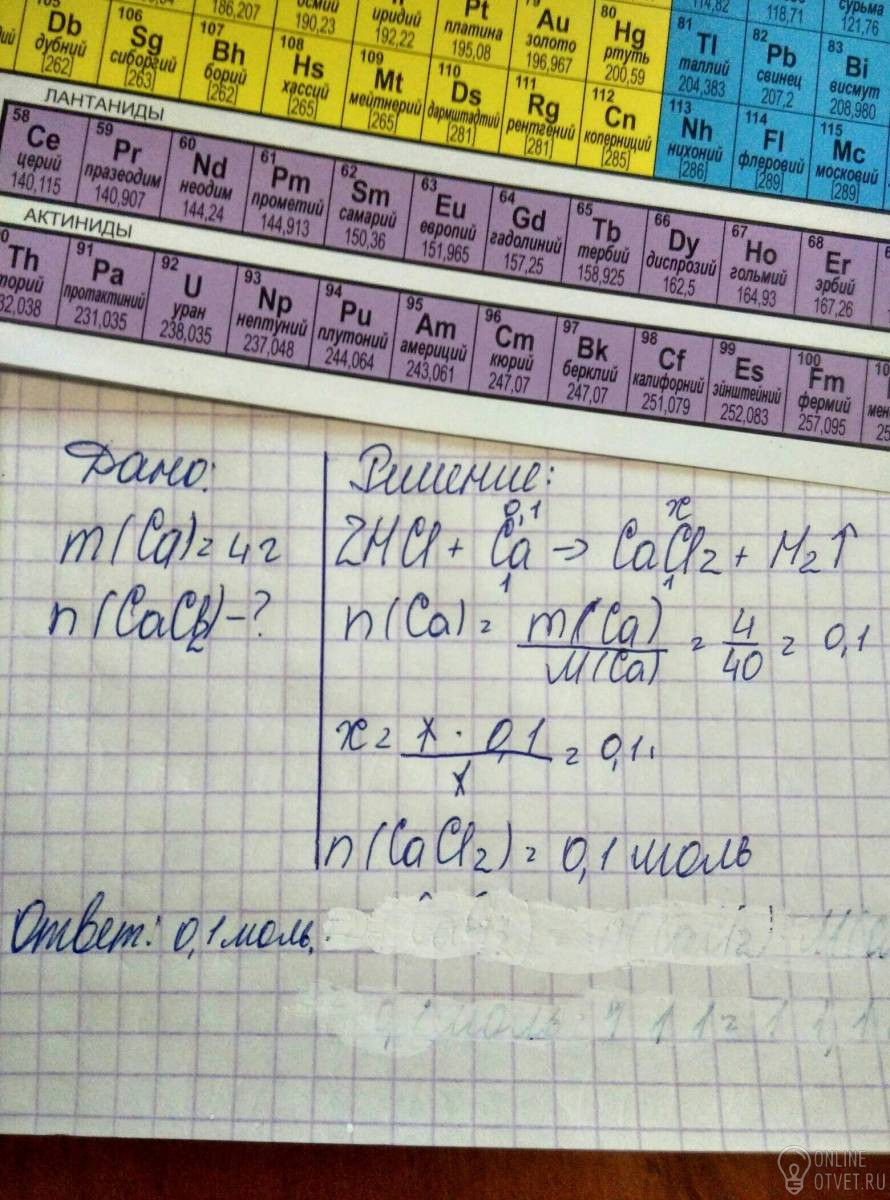 105 106 107 108 186,207 осмий 190,23 иридий 192,22 Pt платина 195,08 79 Au золото 196,967 80 Hg ртуть 200,59 81 Tl таллий 204,383 114,82 82 Pb свинец 207,2 118,71 83 Bi висмут 208,980 сурьма 121,76
Db дубний [262] Sg сиборгий [263] Bh борий [262] Hs хассий [265] 109 Mt мейтнерий [265] 110 Ds дармштадтий [281] 111 Rg рентгений [281] 112 Cn коперниций [285] 113 Nh нихоний [286] 114 Fl флеровий [289] 115 Mc московий [289]
ЛАНТАНИДЫ
58 59 60 61 62 63 64 65 66 67 68
Ce Pr Nd Pm Sm Eu Gd Tb Dy Ho Er
церий празеодим неодим прометий самарий европий гадолиний тербий диспрозий гольмий эрбий
140,115 140,907 144,24 144,913 150,36 151,965 157,25 158,925 162,5 164,93 167,26
АКТИНИДЫ
91 92 93 94 95 96 97 98 99 100
Th Pa U Np Pu Am Cm Bk Cf Es Fm
торий протактиний уран нептуний плутоний америций кюрий берклий калифорний эйнштейний фермий
232,038 231,035 238,035 237,048 244,064 243,061 247,07 247,07 251,079 252,083 257,095
Дано:
m(Ca)=4г
n(CaCl2)-?
Решение:
0,1 x
2HCl + Ca → CaCl2 + H2↑
1 1
n(Ca) = m(Ca) / M(Ca) = 4/40 = 0,1
x = 1 · 0,1 / 1 = 0,1
n(CaCl2) = 0,1 моль
Ответ: 0,1 моль.
ONLINE
OTVET.RU